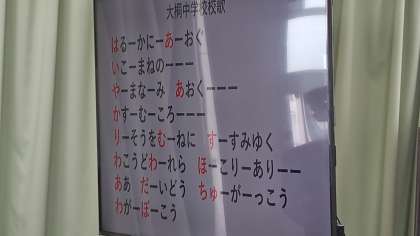 大桐中学校校歌
はるーかにーあーおぐ
いこーまねのーーー
やーまなーみ　あおくーーー
かすーむーころーーー
りーそうをむーねに　すーすみゆく
わこうどわーれら　ほーこりーありーー
ああ　だーいどう　ちゅーがーっこう
わがーぼーこう